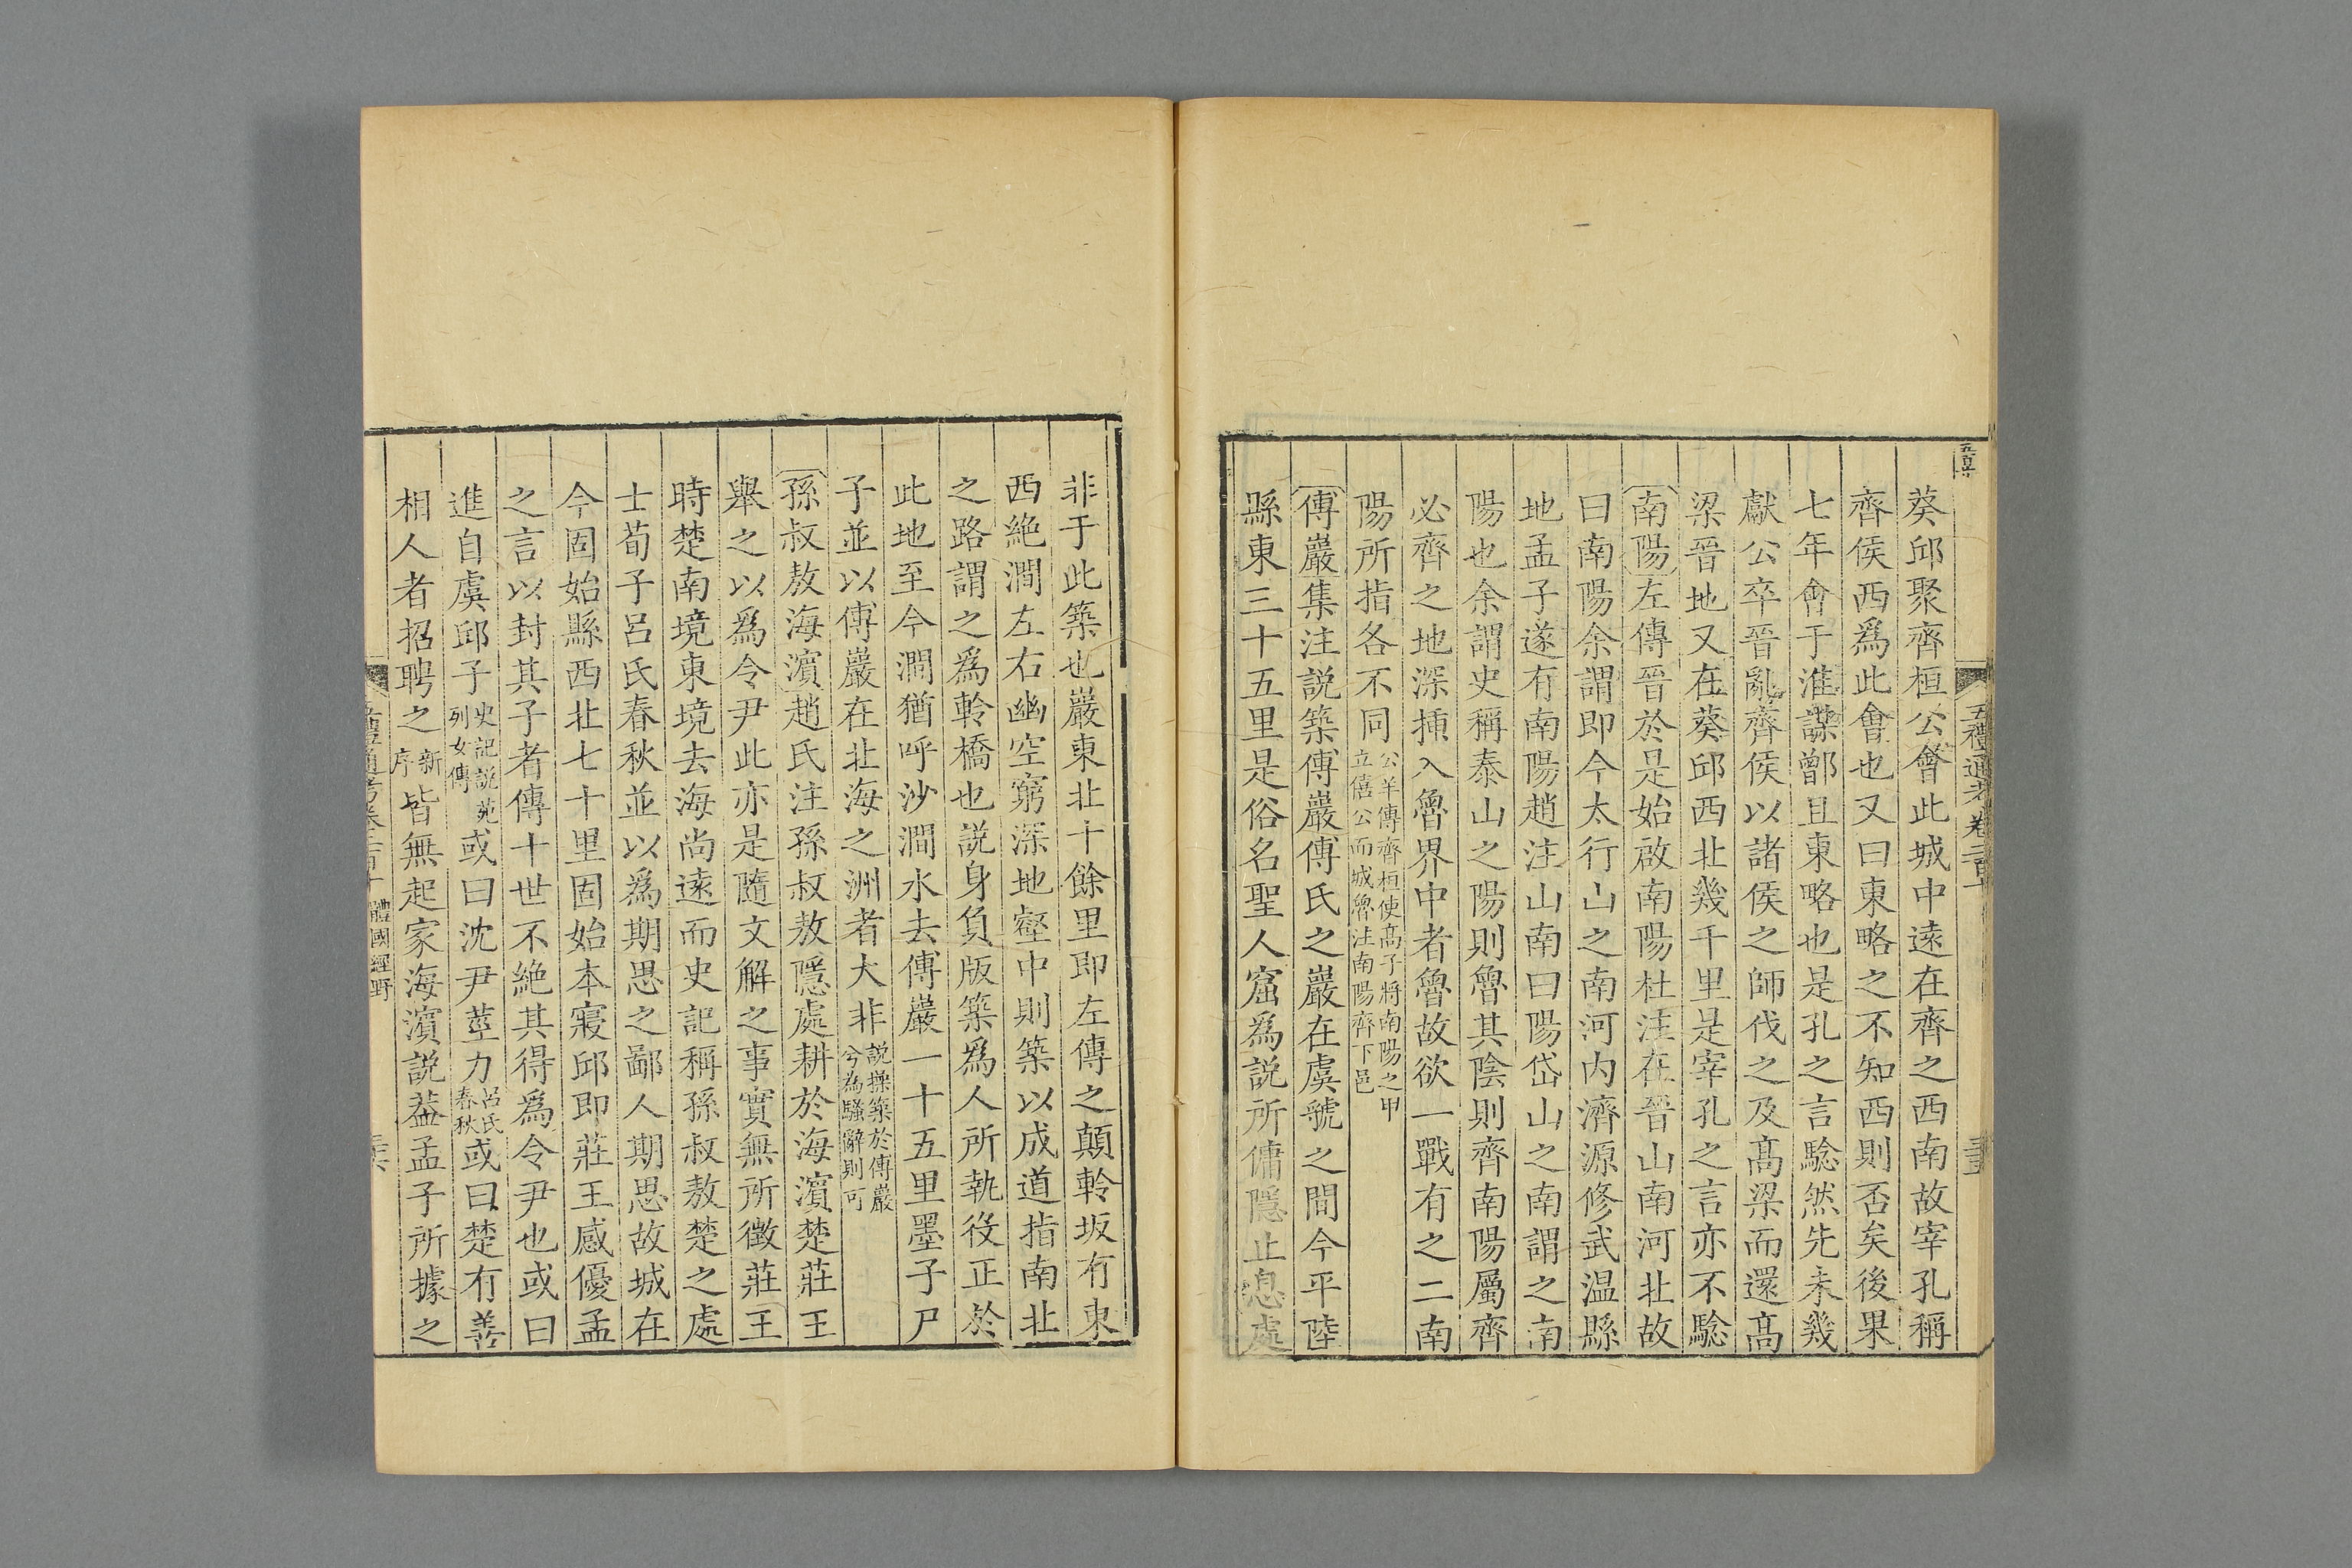 五禮通考卷二百十
葵邱聚齊桓公會此城中遠在齊之西南故宰孔稱
齊侯西爲此會也又曰東略之不知西則否矣後果
七年會于淮謀鄫且東略也是孔之言騐然先未幾
獻公卒晉亂齊侯以諸侯之師伐之及髙梁而還髙
梁晉地又在葵邱西北幾千里是宰孔之言亦不騐
南陽左傳晉於是始啟南陽杜注在晉山南河北故
曰南陽余謂即今太行山之南河内濟源修武温縣
地孟子遂有南陽趙注山南曰陽岱山之南謂之南
陽也余謂史稱泰山之陽則魯其陰則齊南陽屬齊
必齊之地深揷入魯界中者魯故欲一戰有之二南
陽所指各不同公羊傳齊桓使髙子將南陽之甲立僖公而城魯注南陽齊下邑
傅巖集注説築傅巖傅氏之巖在虞虢之間今平陸
縣東三十五里是俗名聖人窟爲説所傭隱止息處
非于此築也巖東北十餘里即左傳之顛軨坂有東
西絶澗左右幽空窮深地壑中則築以成道指南北
之路謂之爲軨橋也説身負版築爲人所執役正於
此地至今澗猶呼沙澗水去傅巖一十五里墨子尸
子並以傅巖在北海之洲者大非説操築於傅巖兮為騷辭則可
孫叔敖海濵趙氏注孫叔敖隱處耕於海濵楚莊王
舉之以爲令尹此亦是隨文解之事實無所徵莊王
時楚南境東境去海尚遠而史記稱孫叔敖楚之處
士荀子呂氏春秋並以爲期思之鄙人期思故城在
今固始縣西北七十里固始本寢邱即莊王感優孟
之言以封其子者傳十世不絶其得爲令尹也或曰
進自虞邱子史記説苑列女傳或曰沈尹莖力呂氏春秋或曰楚有善
相人者招聘之新序皆無起家海濵説葢孟子所據之
五禮通考卷二百十 體國經野